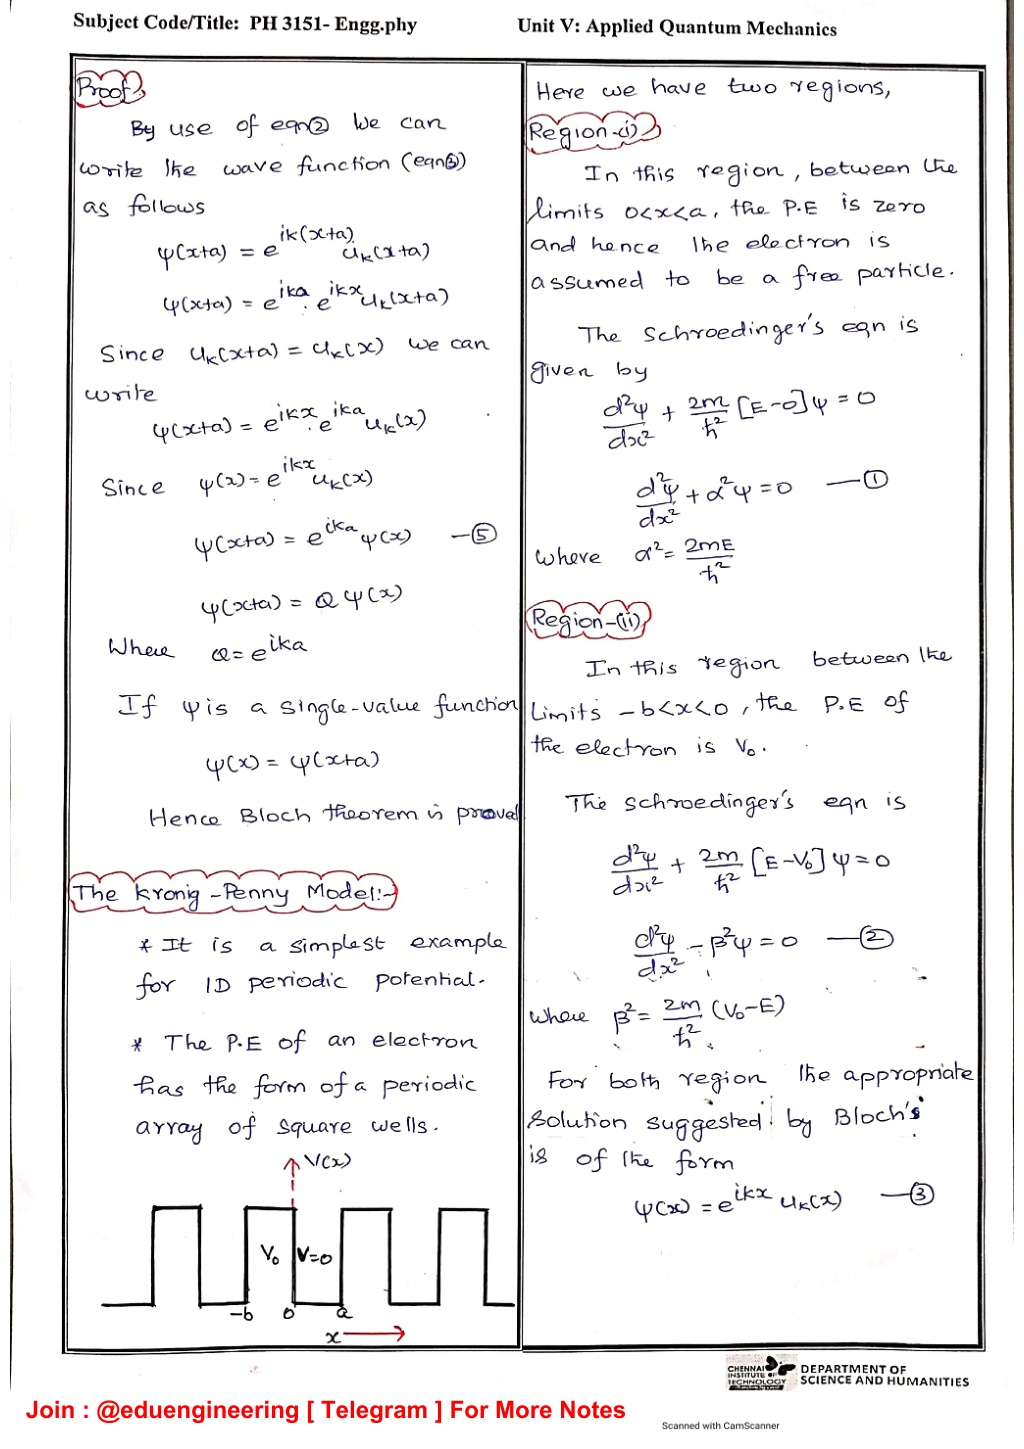 Subject Code/Title: PH 3151- Engg.phy
Unit V: Applied Quantum Mechanics
Proof:
By use of eqn② We can
write the wave function (eqn③)
as follows
ψ(x+a) = e^{ik(x+a)} u_k(x+a)
ψ(x+a) = e^{ika} . e^{ikx} u_k(x+a)
Since u_k(x+a) = u_k(x) we can
write
ψ(x+a) = e^{ikx} . e^{ika} u_k(x)
Since ψ(x) = e^{ikx} u_k(x)
ψ(x+a) = e^{ika} ψ(x) —⑤
ψ(x+a) = Q ψ(x)
Where Q = e^{ika}
If ψ is a single-value function
ψ(x) = ψ(x+a)
Hence Bloch theorem is proved
The Kronig -Penny Model:-
* It is a simplest example
for 1D periodic potential.
* The P.E of an electron
has the form of a periodic
array of square wells.
V(x)
V₀ V=0
-b 0 a
x
Here we have two regions,
Region-(i)
In this region, between the
limits 0<x<a, the P.E is zero
and hence the electron is
assumed to be a free particle.
The Schroedinger's eqn is
given by
d²ψ/dx² + 2m/ħ² [E-0]ψ = 0
d²ψ/dx² + α²ψ = 0 —①
where α² = 2mE/ħ²
Region-(ii)
In this region between the
limits -b<x<0, the P.E of
the electron is V₀.
The schroedinger's eqn is
d²ψ/dx² + 2m/ħ² [E-V₀] ψ = 0
d²ψ/dx² - β²ψ = 0 —②
where β² = 2m/ħ² (V₀-E)
For both region the appropriate
solution suggested by Bloch's
is of the form
ψ(x) = e^{ikx} u_k(x) —③
CHENNAI
INSTITUTE OF
TECHNOLOGY
DEPARTMENT OF
SCIENCE AND HUMANITIES
Join : @eduengineering [ Telegram ] For More Notes
Scanned with CamScanner